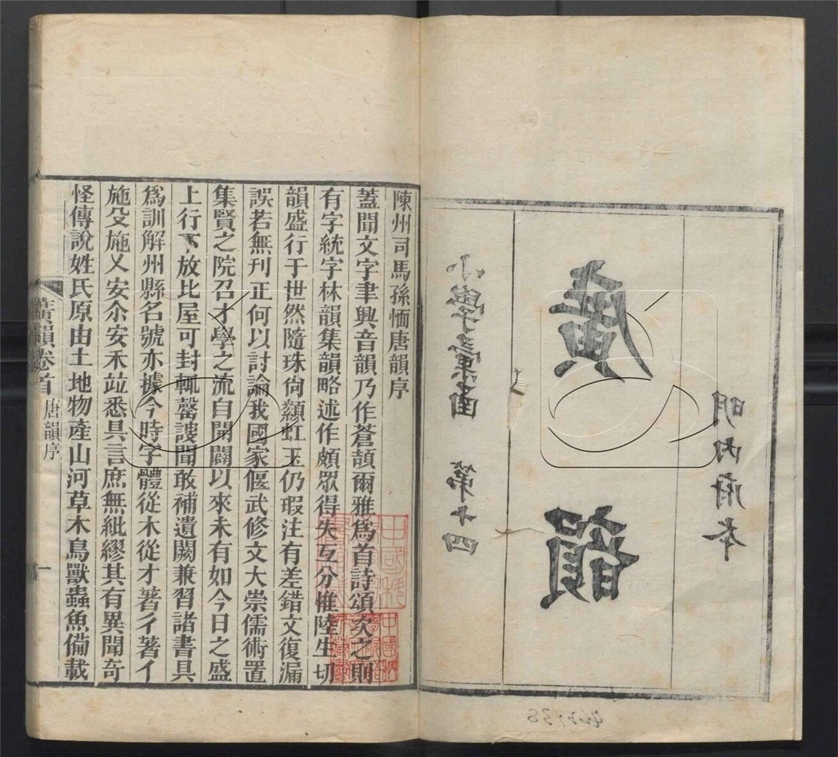 明內府本
廣韻
小學彙函 第十四
陳州司馬孫愐唐韻序
蓋聞文字聿興音韻乃作蒼頡爾雅爲首詩頌次之則
有字統字林韻集韻略述作頗眾得失互分惟陸生切
韻盛行于世然隨珠尙纇虹玉仍瑕注有差錯文復漏
誤若無刊正何以討論我國家偃武修文大崇儒術置
集賢之院召才學之流自開闢以來未有如今日之盛
上行下放比屋可封輒罄謏聞敢補遺闕兼習諸書具
爲訓解州縣名號亦據今時字體從木從才著彳著亻
施殳施攵安尒安禾竝悉具言庶無紕繆其有異聞奇
怪傳說姓氏原由土地物產山河草木鳥獸蟲魚僃載
廣韻卷首 唐韻序 一